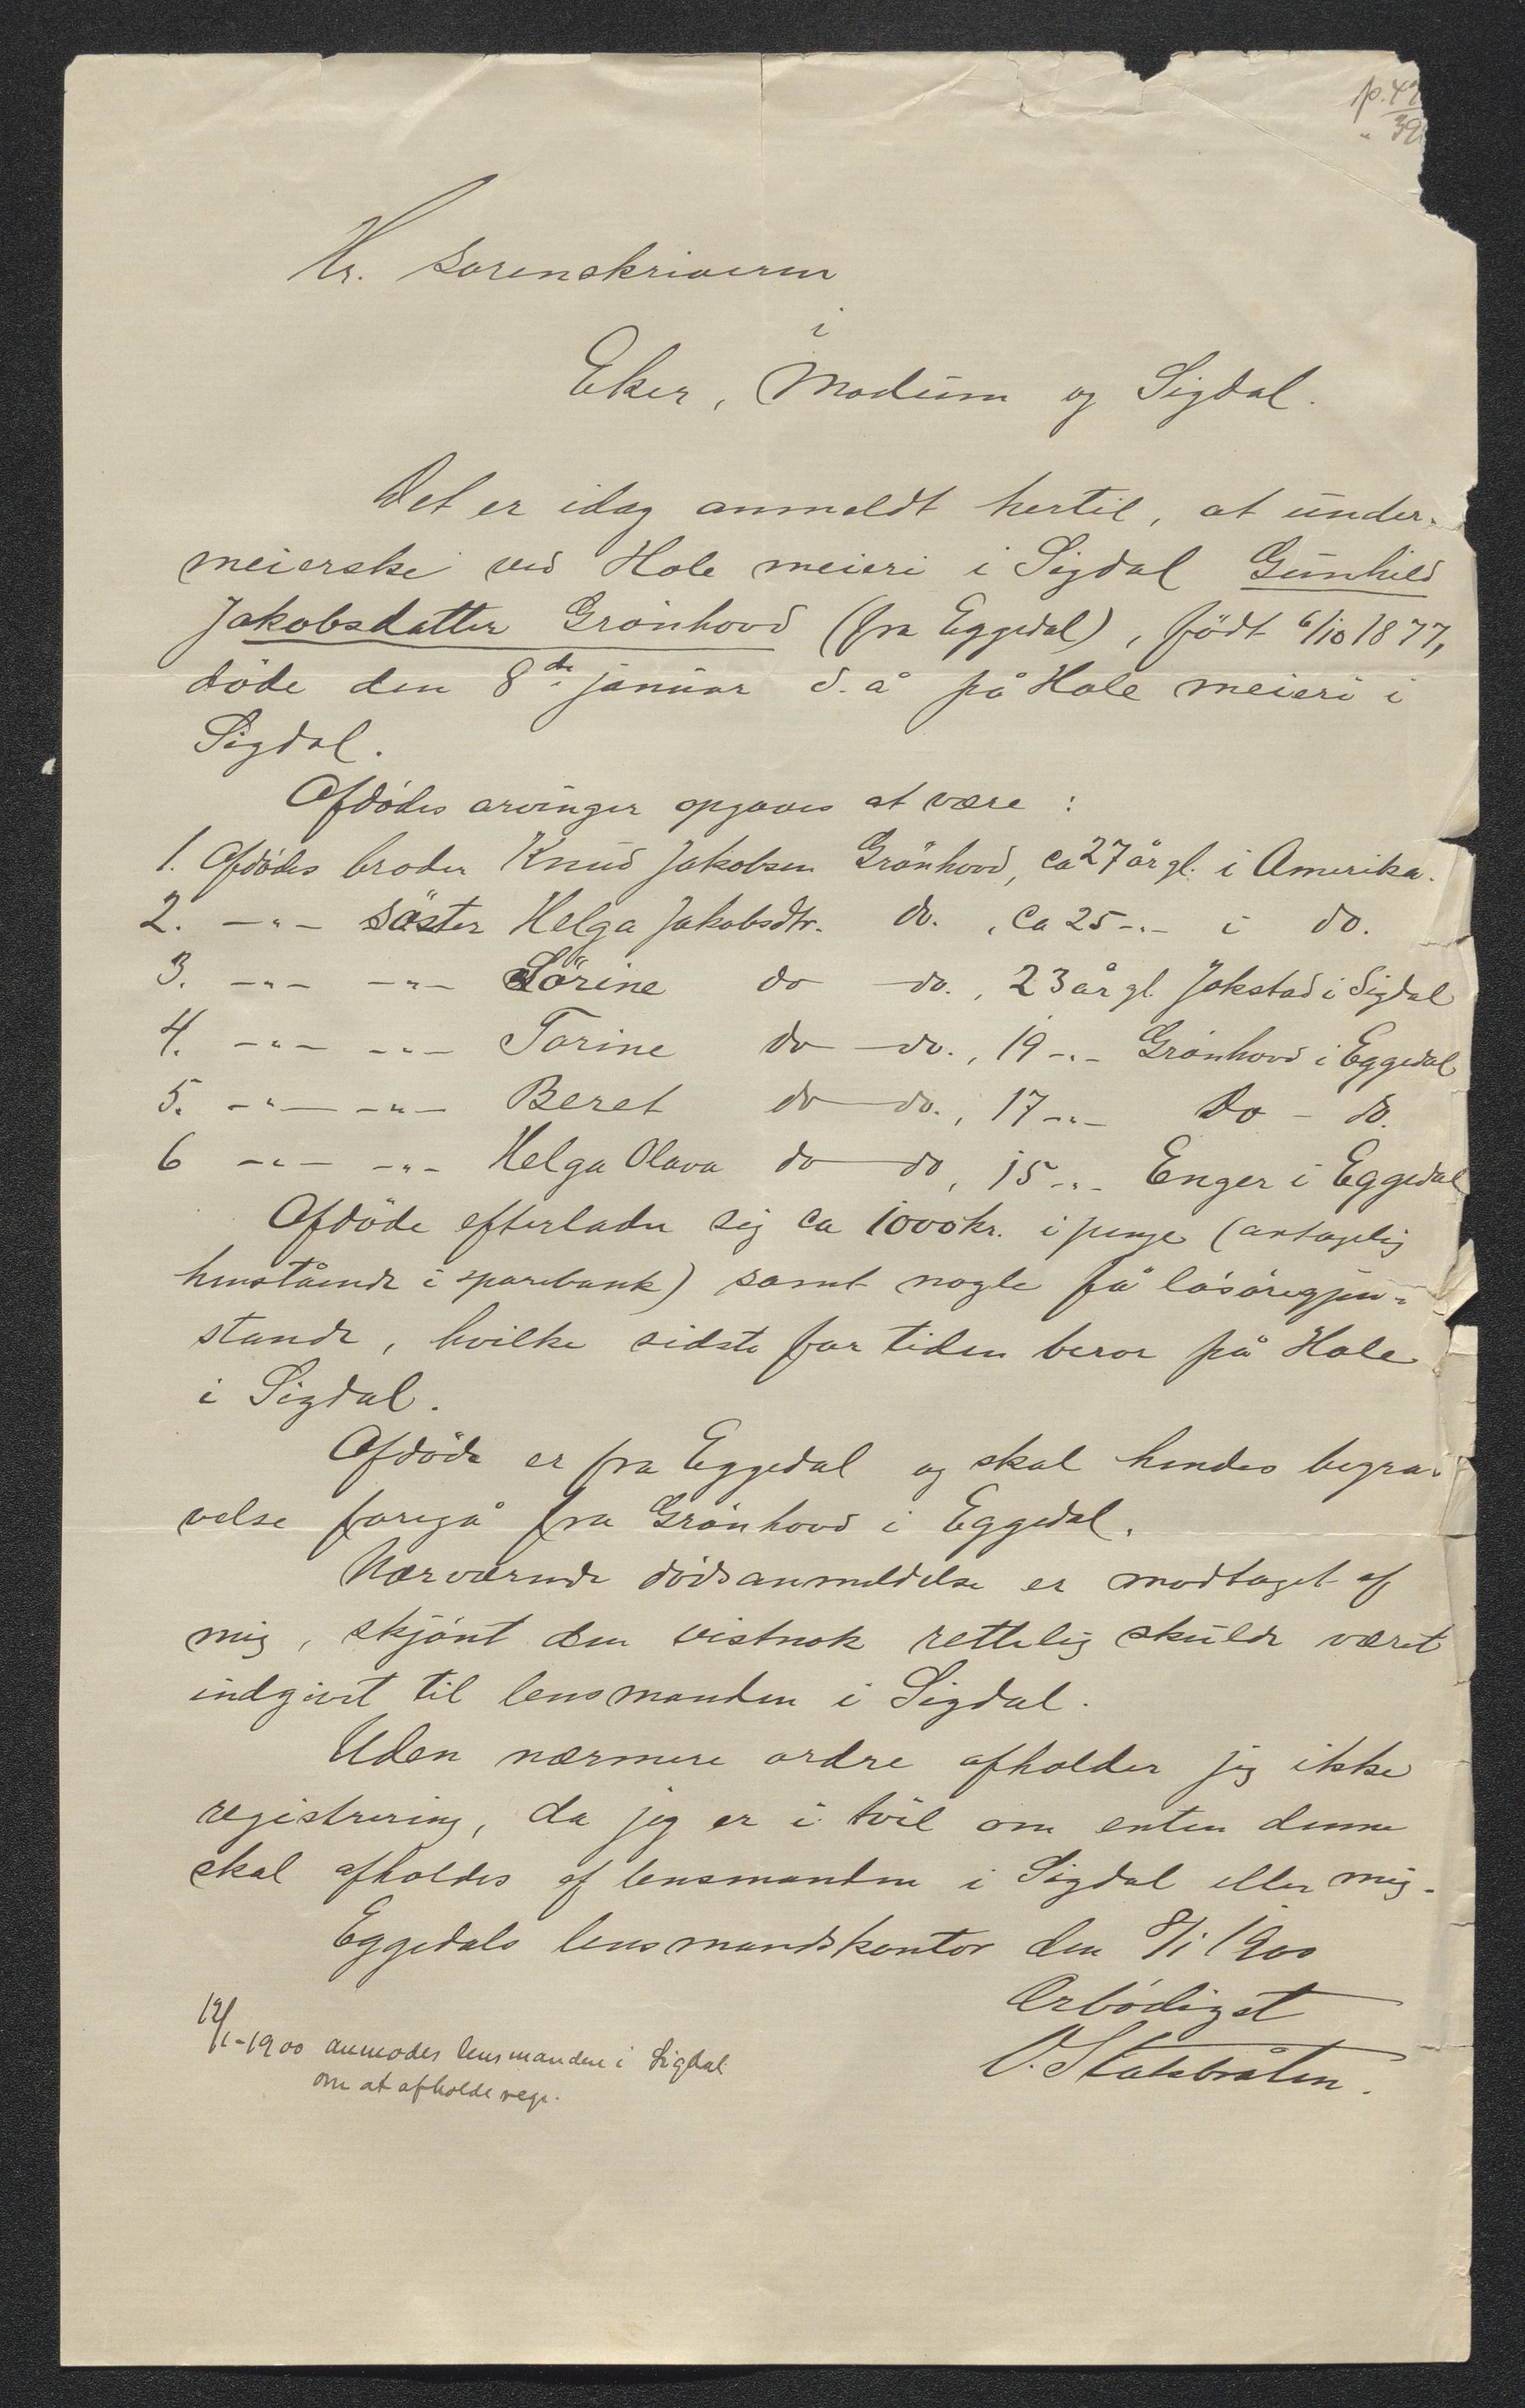 p. 49
" 39
Hr. Sorenskriveren
i
Eker, Modum og Sigdal.
Det er idag anmeldt hertil, at under-
meierske ved Hole meieri i Sigdal Gunhild
Jakobsdatter Grönhovd (fra Eggedal), födt 6/10 1877,
döde den 8de januar d. å på Hole meieri i
Sigdal.
Afdödes arvinger opgaves at være :
1. Afdödes broder Knud Jakobsen Grönhovd, ca 27 år gl. i Amerika.
2. -"- söster Helga Jakobsdtr. do. , ca 25 -"- i do.
3. -"- -"- Sörine do do. , 23 år gl. Jokstad i Sigdal
4. -"- -"- Torine do do. , 19 -"- Grönhovd i Eggedal
5. -"- -"- Beret do do. , 17 -"- Do - do.
6 -"- -"- Helga Olava do do , 15 -"- Enger i Eggedal
Afdöde efterlader sig ca 1000 kr. i penge (antagelig
henstående i sparebank) samt nogle få lösöregjen-
stande, hvilke sidste for tiden beror på Hole
i Sigdal.
Afdöde er fra Eggedal og skal hendes begra-
velse foregå fra Grönhovd i Eggedal.
Nærværende dödsanmeldelse er modtaget af
mig, skjönt den vistnok rettelig skulde været
indgivet til lensmanden i Sigdal.
Uden nærmere ordre afholder jeg ikke
registrering, da jeg er i tvil om enten denne
skal afholdes af lensmanden i Sigdal eller mig.
Eggedals lensmandskontor den 8/1 1900
Ærbödigst
O. Stakebråten.
12/1-1900 anmodes lensmanden i Sigdal
om at afholde regs.